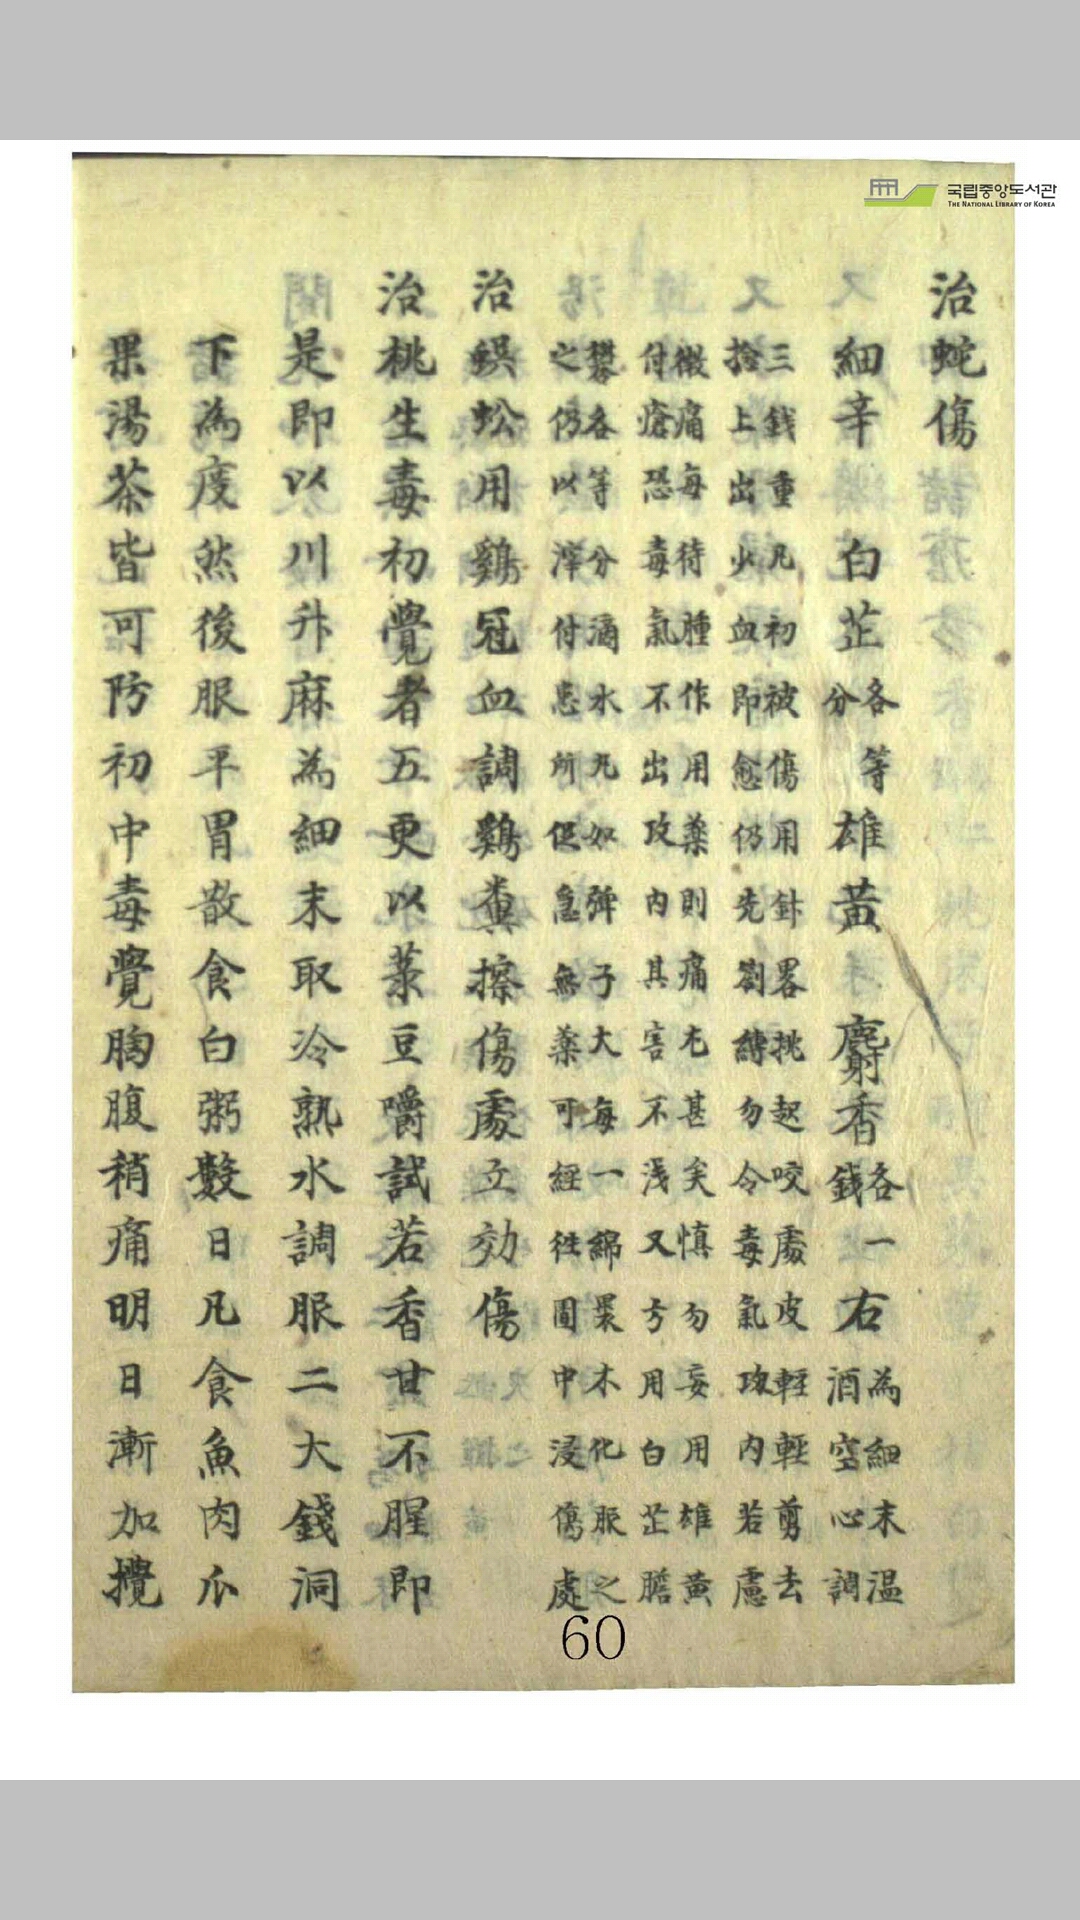 국립중앙도서관
THE NATIONAL LIBRARY OF KOREA
治蛇傷
細辛 白芷各等分 雄黃 麝香各一錢 右為細末温酒空心調
三錢重凡初被傷用針畧挑起咬處皮輕輕剪去
捻上出火血即愈仍先劄縛勿令毒氣攻内若慮
微痛每待腫作用藥則痛尤甚矣慎勿妄用雄黄
付瘡恐毒氣不出攻内其害不浅又方用白芷膽
礬各等分滴水丸如弹子大每一綿褁木化服之
之仍以滓付患所促急無藥可経徃圊中浸傷處
治蜈蚣用鷄冠血調鷄糞擦傷處立効傷
治桃生毒初覺者五更以菉豆嚼試若香甘不腥即
是即以川升麻為細末取冷熟水調服二大錢洞
下為度然後服平胃散食白粥數日凡食魚肉瓜
果湯茶皆可防初中毒覺胸腹稍痛明日漸加攪
60